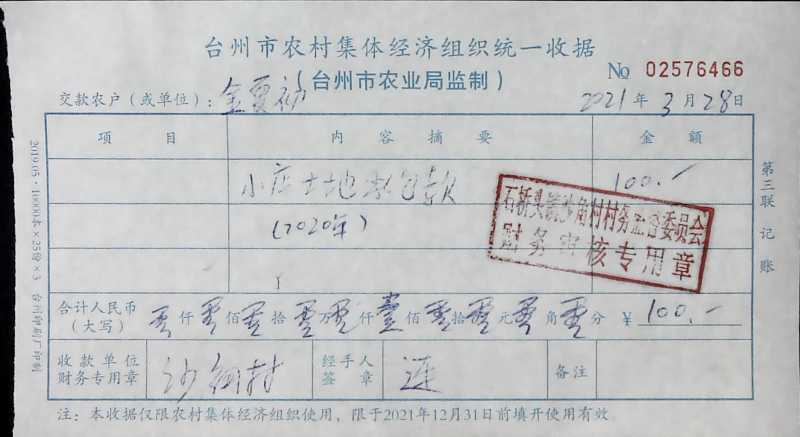 台州市农村集体经济组织统一收据
（台州市农业局监制）
№ 02576466
交款农户（或单位）：金夏初
2021年3月28日
项目 内容摘要 金额
小店土地承包款 100.-
(2020年)
石桥头镇沙角村村务监督委员会
财务审核专用章
合计人民币（大写） 零仟零佰零拾零万零仟壹佰零拾零元零角零分 ￥100.-
收款单位财务专用章 沙角村 经手人签章 连 备注
注：本收据仅限农村集体经济组织使用，限于2021年12月31日前填开使用有效
第三联 记账
2019.05·10000本×25份×3 台州印刷厂印制